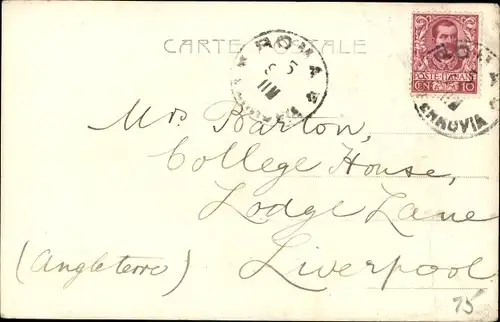 CARTE POSTALE
ROMA
5
VII
POSTE ITALIANE
CEN 10
ROMA
FERROVIA
Mrs Barton,
College House,
Lodge Lane
(Angleterre) Liverpool
75